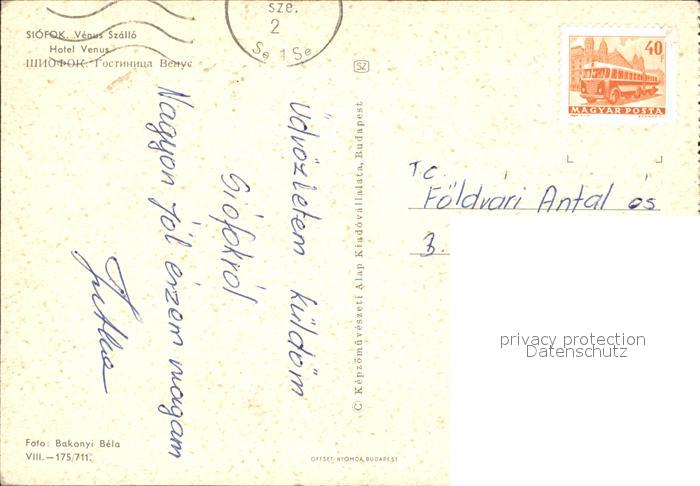 SIÓFOK. Vénus Szálló
Hotel Venus
ШИОФОК. Гостиница Венус
sze.
2
Se 1 Se
SZ
40 F
MAGYAR POSTA
Üdvözletem küldöm
Siófokról
Nagyon jól érzem magam
Jutka
C Képzőművészeti Alap Kiadóvállalata, Budapest
T.C.
Földvári Antal és
3.
privacy protection
Datenschutz
Foto: Bakonyi Béla
VIII.—175/711.
OFFSET-NYOMDA, BUDAPEST